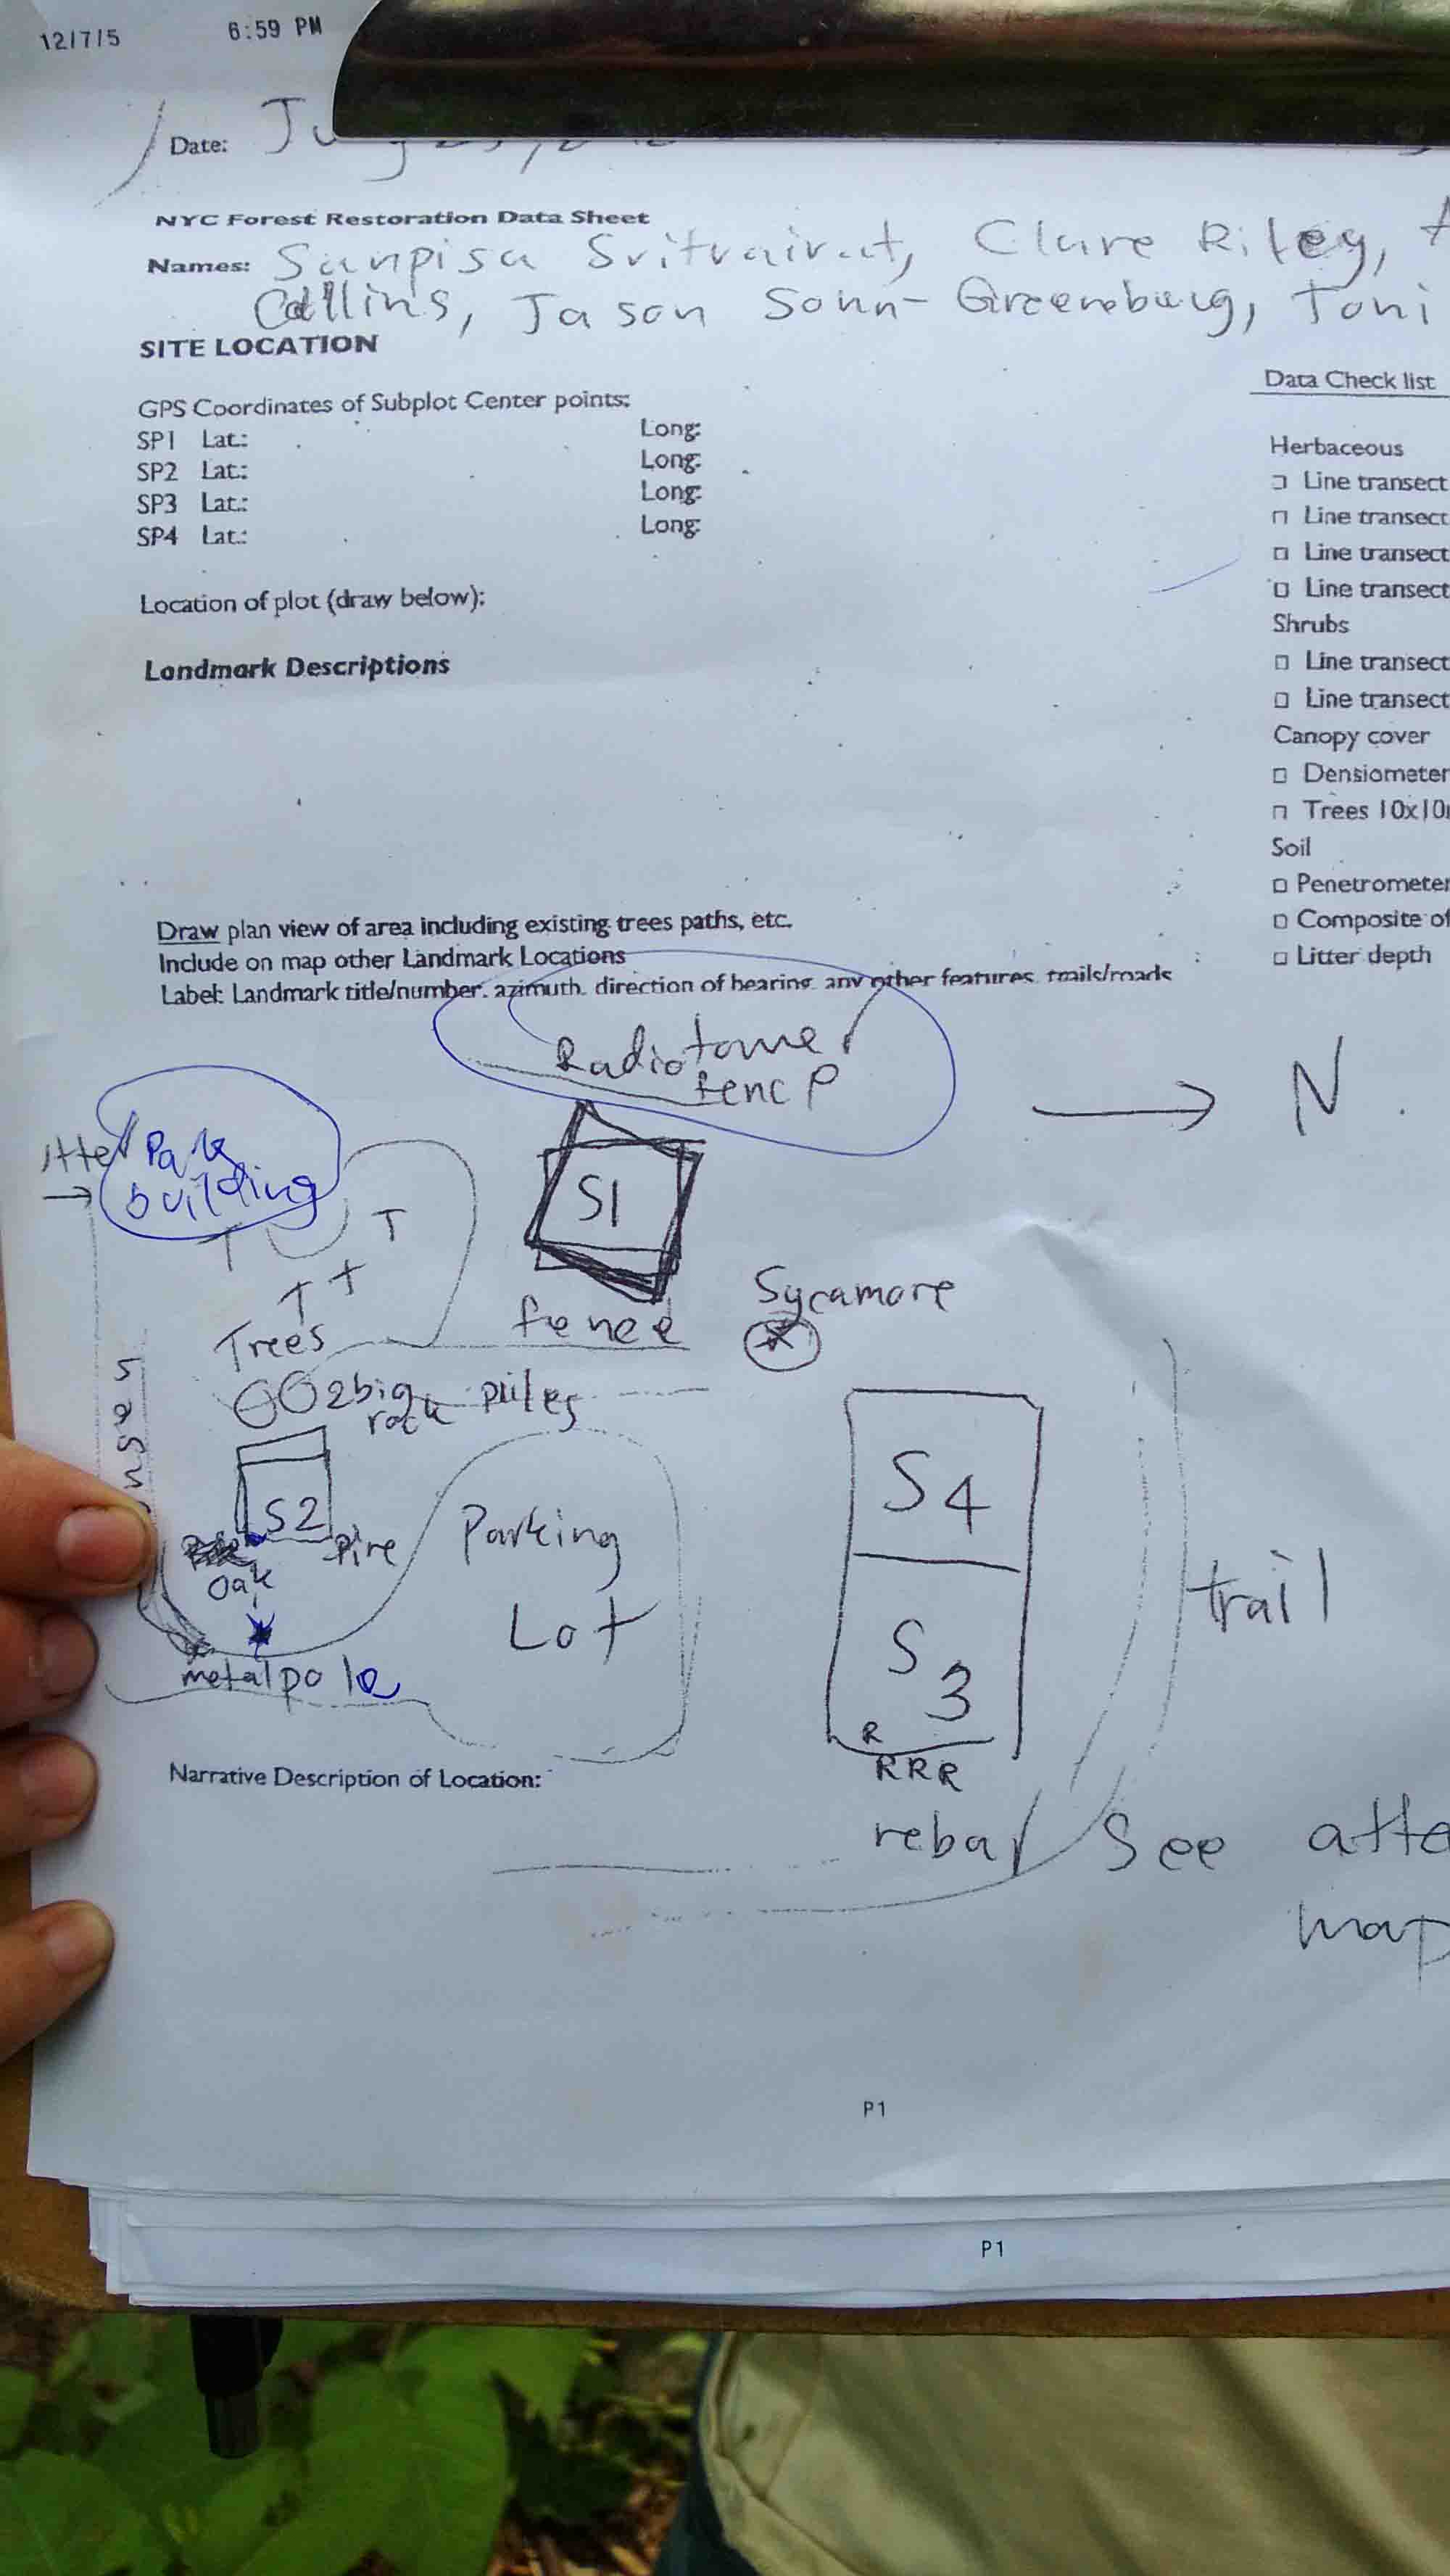 12/7/5 6:59 PM
Date:
NYC Forest Restoration Data Sheet
Names: Sanpisa Sritrairat, Clare Riley,
Collins, Jason Sonn-Greenburg, Toni
SITE LOCATION
GPS Coordinates of Subplot Center points:
SP1 Lat.: Long:
SP2 Lat.: Long:
SP3 Lat.: Long:
SP4 Lat.: Long:
Location of plot (draw below):
Landmark Descriptions
Data Check list
Herbaceous
Line transect
Line transect
Line transect
Line transect
Shrubs
Line transect
Line transect
Canopy cover
Densiometer
Trees 10x10
Soil
Penetrometer
Composite of
Litter depth
Draw plan view of area including existing trees paths, etc.
Include on map other Landmark Locations
Label: Landmark title/number, azimuth, direction of bearing, any other features, trails/roads
Radio tower
fence
N
Park
building
S1
T
T
T T
Trees
fence
Sycamore
2 big
rock piles
S2
Oak
Pine
metal pole
Parking
Lot
S4
S3
R
RRR
rebar
trail
Narrative Description of Location:
See
map
P1
P1